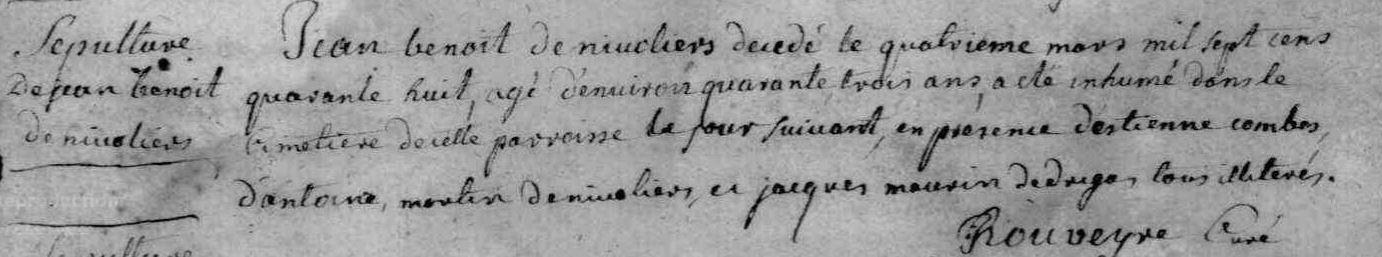 Sepulture
De jean benoit
de nivoliers
Jean benoit de nivoliers decedé le quatrieme mars mil sept cens
quarante huit, agé d'environ quarante trois ans, a eté inhumé dans le
cimetiere de cette parroisse le jour suivant, en présence d'estienne combes,
d'antoine, martin de nivoliers, et jacques maurin de drigas tous illiterés.
Rouveyre Curé
Sepulture